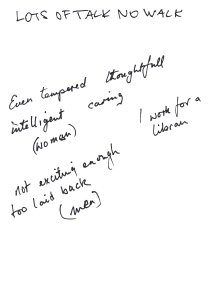 LOTS OF TALK NO WALK
Even tempered thoughtfull
intelligent caring
(women)
I work for a
libran
not exciting enough
too laid back
(men)